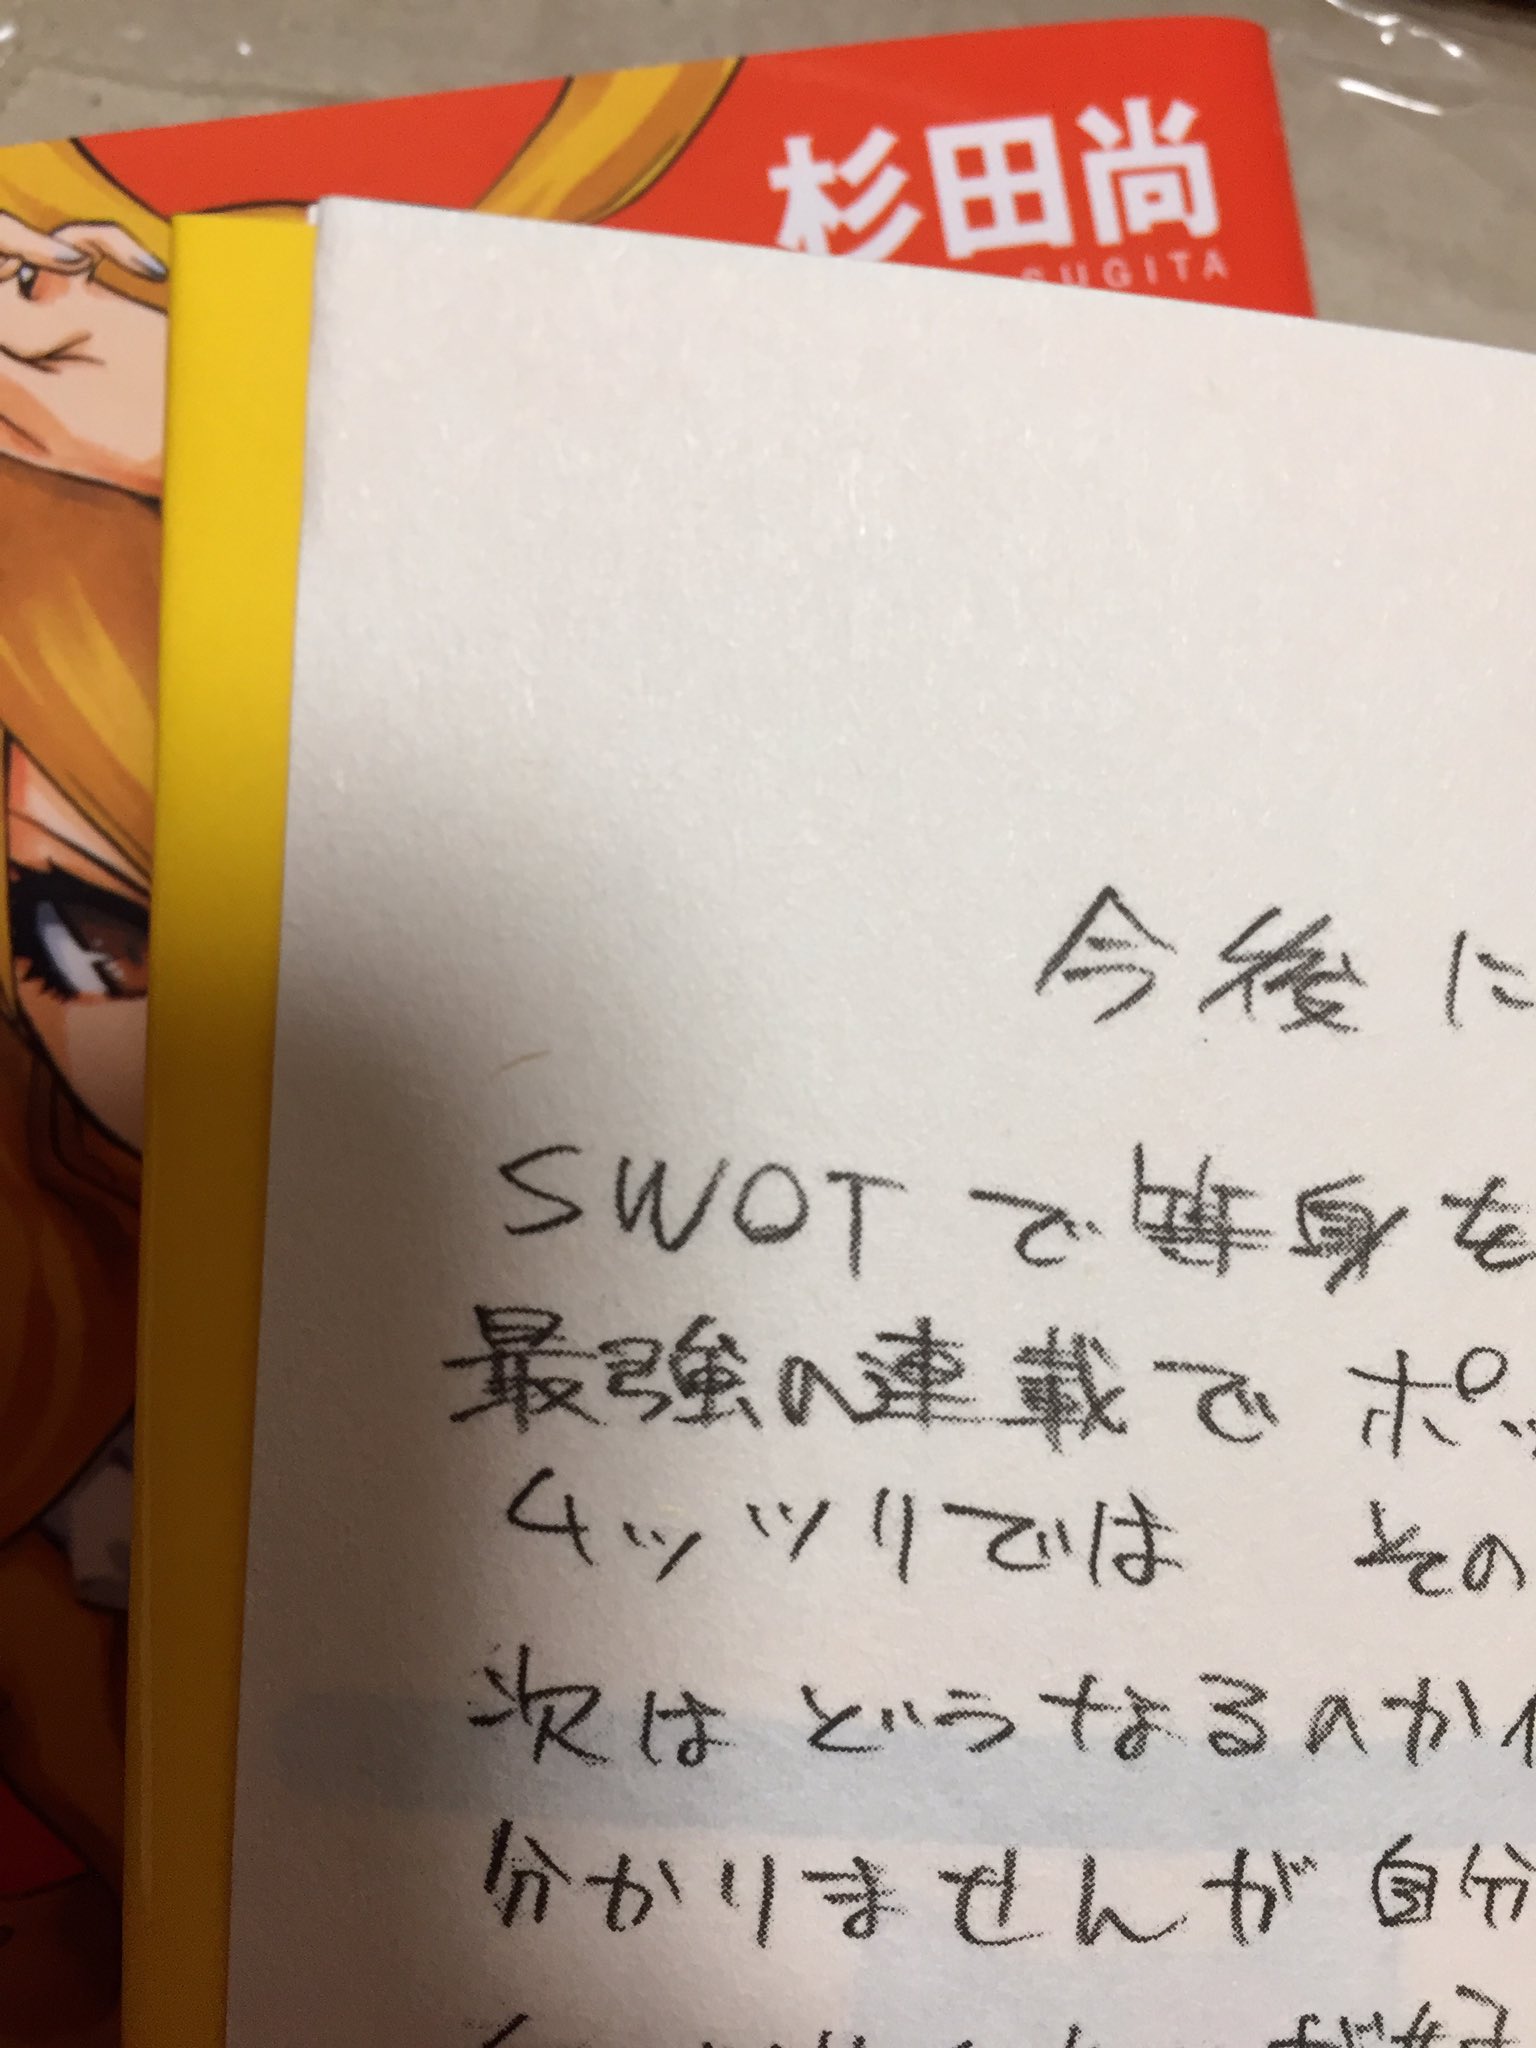 杉田尚
SUGITA
今後に
SWOTで等身を
最強の連載でポッ
ムッツリでは その
次は どうなるのか
分かりませんが自分